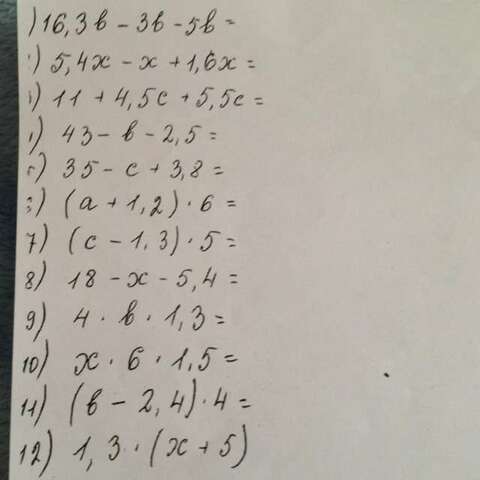 )16,3в - 3в - 5в =
) 5,4х - х + 1,6х =
) 11 + 4,5с + 5,5с =
) 43 - в - 2,5 =
) 35 - с + 3,8 =
) (а + 1,2) · 6 =
7) (с - 1,3) · 5 =
8) 18 - х - 5,4 =
9) 4 · в · 1,3 =
10) х · 6 · 1,5 =
11) (в - 2,4) · 4 =
12) 1,3 · (х + 5)